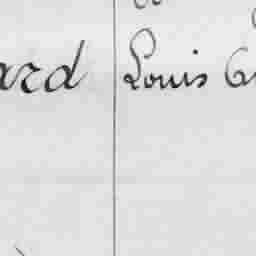 ard Louis